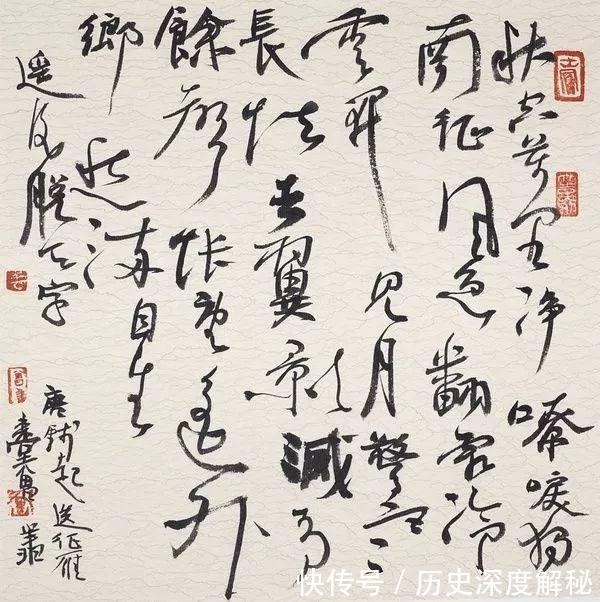 秋空萬里净嘹唳獨
南征風急翻霜冷
雲開見月驚塞
長怯去翼影滅有
餘聲悵望遙外
鄉愁滿自生
遥后脱天字
唐錢起送征雁
快传号 / 历史深度解秘